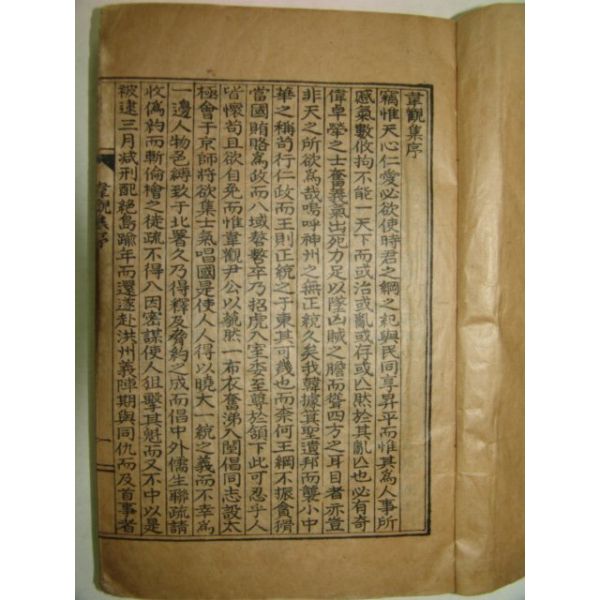 韋觀集序
竊惟天心仁愛必欲使時君之綱之紀與民同享昇平而惟其為人事所
感氣數攸拘不能一天下而或治或亂或存或亡然於其亂亡也必有奇
偉卓犖之士奮義氣出死力足以墜凶賊之膽而聳四方之耳目者亦豈
非天之所欲為哉嗚呼神州之無正統久矣我韓據箕聖遺邦而襲小中
華之称苟行仁政而王則正統之于東其可幾也而柰何王綱不振貪猾
當國賄賂為政而八域嗸嗸卒乃招虎入室李至尊於頷下此可忍乎人
皆懷苟且欲自免而惟韋觀尹公以藐然一布衣奮涕入闉倡同志設太
極會于京師將欲集士氣唱國是使人人得以曉大一統之義而不幸為
一邊人物色縛致于北署久乃得釋及脅約之成而倡中外儒生聯疏請
收偽約而斬倫檜之徒疏不得入因密謀使人狙擊其魁而又不中以是
被逮三月減刑配絶島踰年而還遂赴洪州義陣期與同仇而及首事者
韋觀集序
一